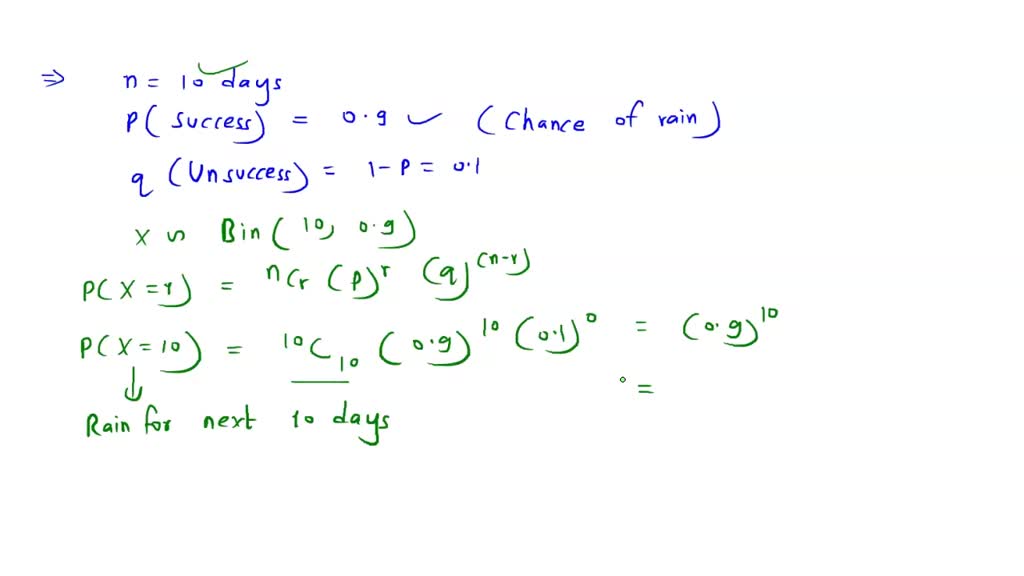 ⇒ n = 10 days
P( success) = 0.9 ✓ (Chance of rain)
q (Unsuccess) = 1-P = 0.1
X ∽ Bin (10, 0.9)
P(X=r) = nCr (P)^r (q)^(n-r)
P(X=10) = ¹⁰C₁₀ (0.9)¹⁰ (0.1)⁰ = (0.9)¹⁰
↓ =
Rain for next 10 days